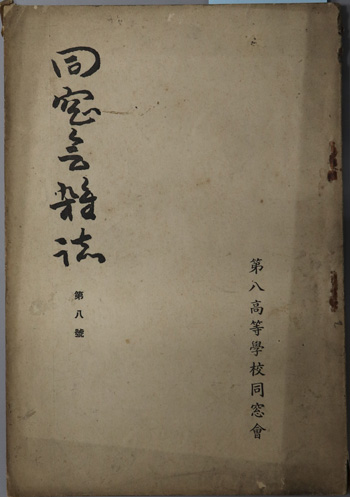 同窓会雑誌
第八號
第八高等學校同窓會